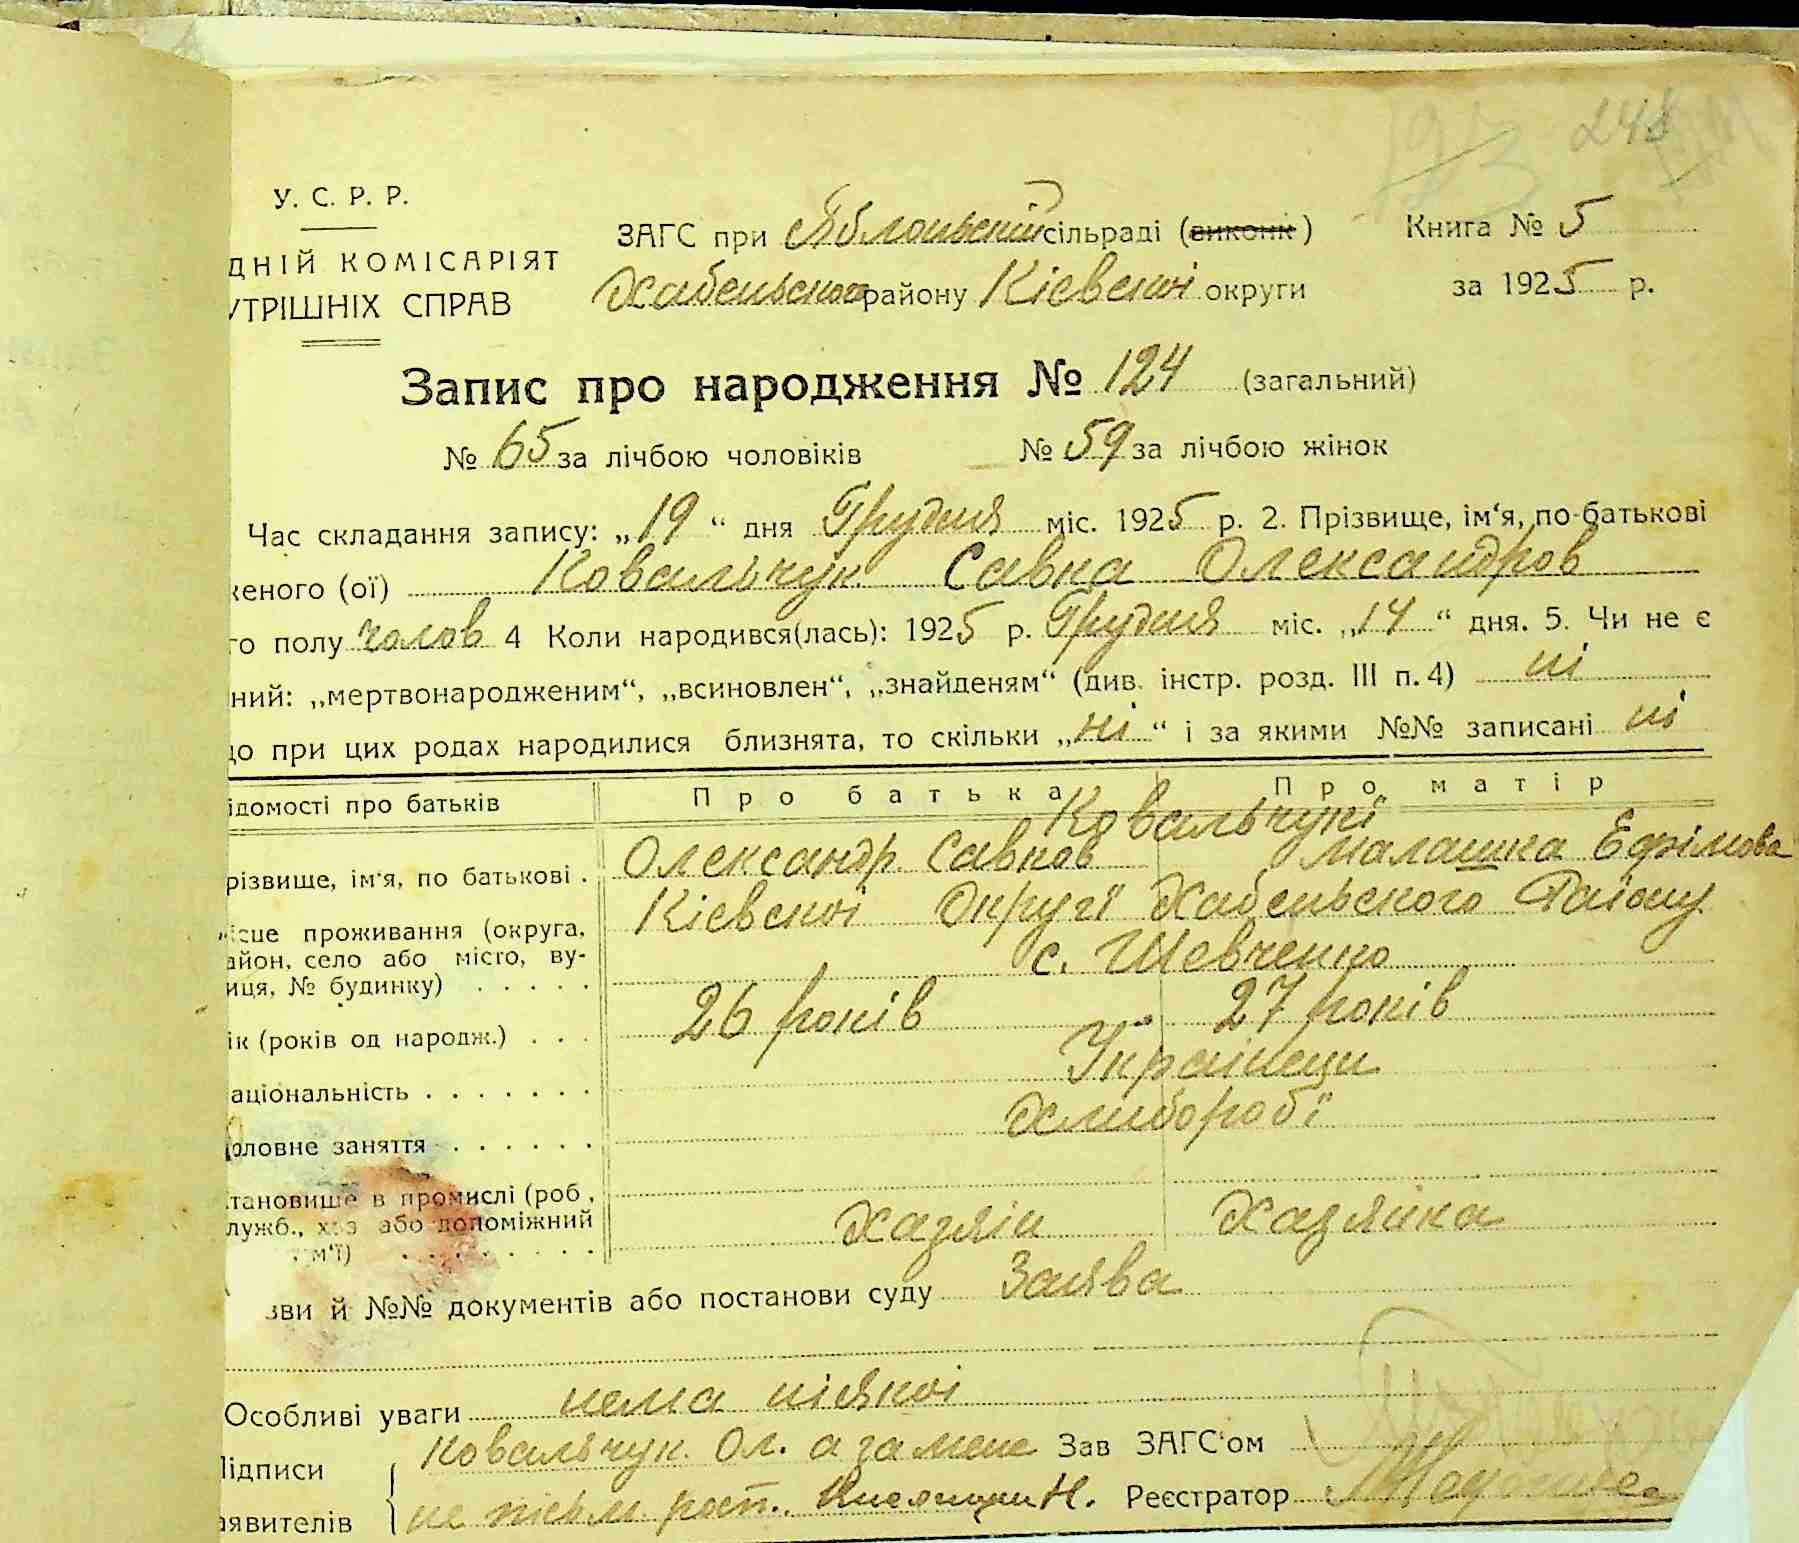 248
У. С. Р. Р.
ЗАГС при Яблонській сільраді (виконк) Книга № 5
ДНІЙ КОМІСАРІЯТ
Хабенського району Кіевскоі округи за 1925 р.
УТРІШНІХ СПРАВ
Запис про народження № 124 (загальний)
№ 65 за лічбою чоловіків № 59 за лічбою жінок
Час складання запису: „19“ дня Грудня міс. 1925 р. 2. Прізвище, ім‘я, по-батькові
женого (ої) Ковальчук Савка Олександров
го полу чолов 4 Коли народився(лась): 1925 р. Грудня міс. „14“ дня. 5. Чи не є
ний: „мертвонародженим“, „всиновлен“, „знайденям“ (див. інстр. розд. III п. 4) ні
до при цих родах народилися близнята, то скільки „ні“ і за якими №№ записані ні
ідомості про батьків Про батька Про матір
Ковальчукі
різвище, ім‘я, по батькові . Олександр Савков Малашка Ефімова
ісце проживання (округа, Кіевскоі Округі Хабенського Району
айон, село або місто, ву- с. Шевченко
иця, № будинку) . . . . .
ік (років од народж.) . . . 26 років 27 років
аціональність . . . . . . . Українци
оловне заняття . . . . . . Хлибороб'ї
тановище в промислі (роб.,
лужб., хаз або допоміжний Хазяін Хазяйка
м‘ї) . . . . . . . .
зви й №№ документів або постанови суду Заява
Особливі уваги нема ніякоі
Підписи Ковальчук. Ол. а за мене Зав ЗАГС‘ом
аявителів не письм. расп. Н. Реєстратор